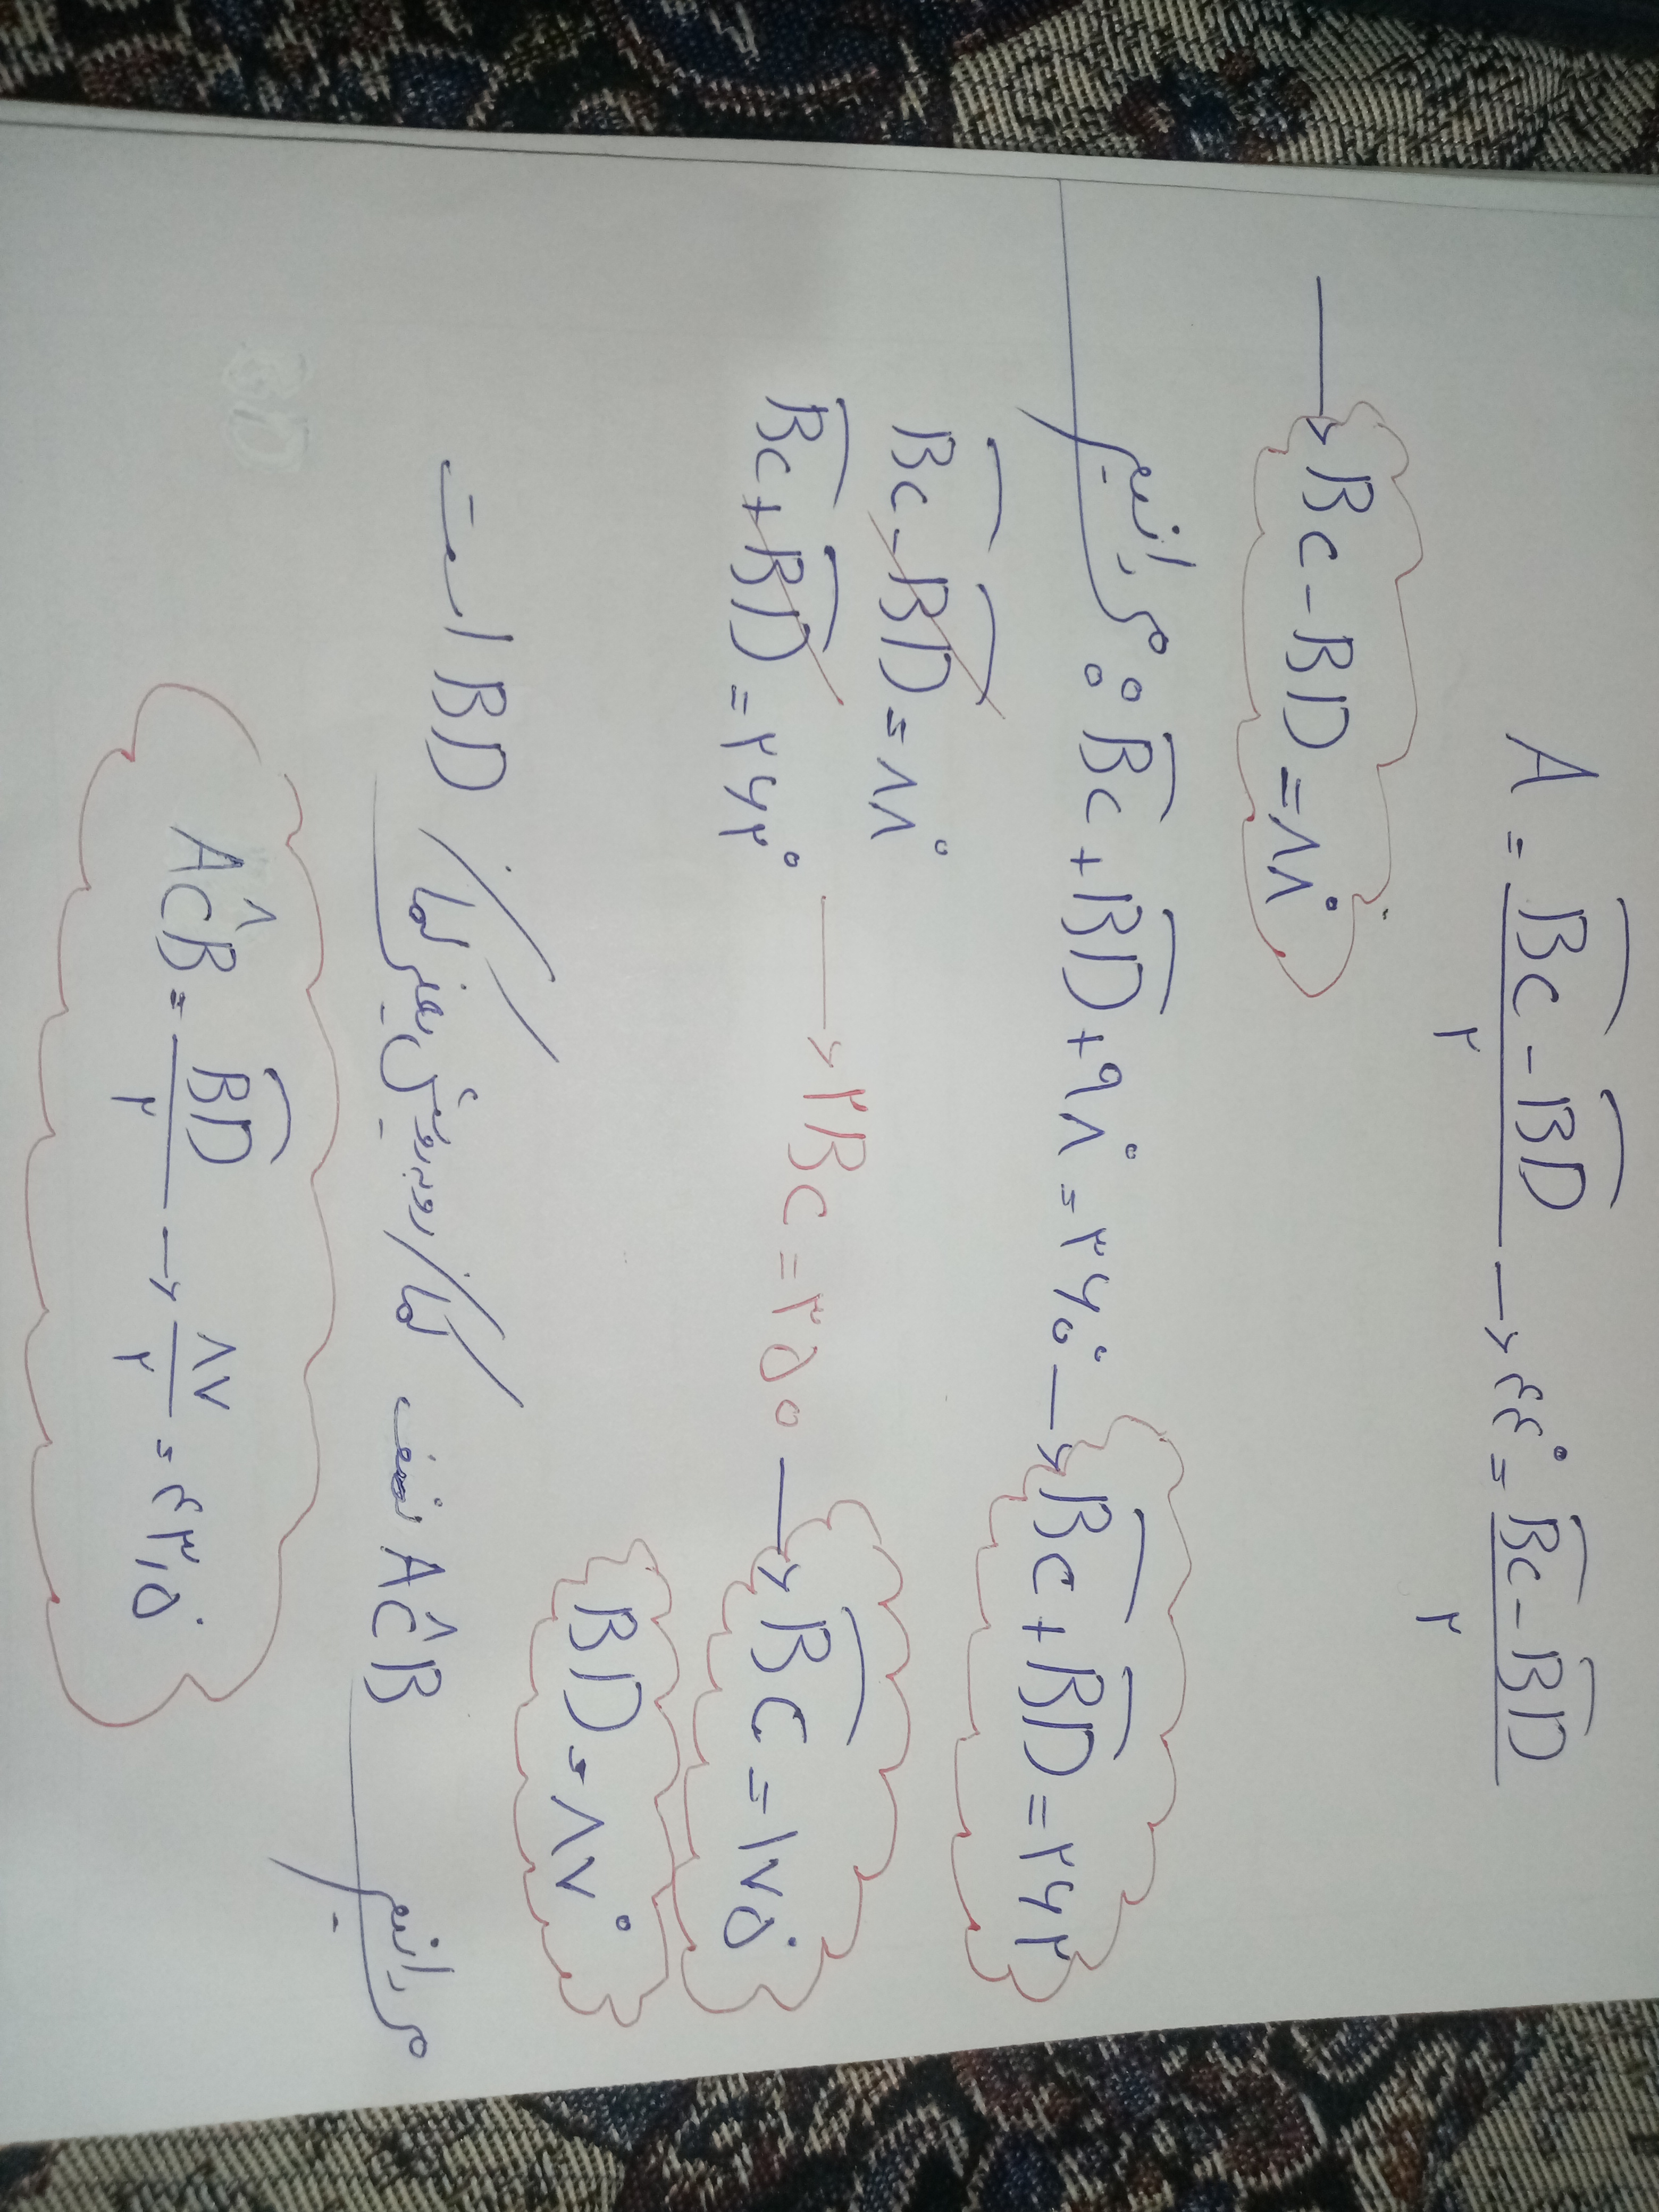 A = B͡C - B͡D / ۲ → ۴۴° = B͡C - B͡D / ۲
→ BC - BD = ۸۸°
می دانیم : B͡C + B͡D + ۹۸° = ۳۶۰° → B͡C + B͡D = ۲۶۲
B͡C - B͡D = ۸۸°
B͡C + B͡D = ۲۶۲° → ۲BC = ۳۵۰ → B͡C = ۱۷۵°
BD = ۸۷°
می دانیم AĈB نصف کمان روبه رویش یعنی کمان BD است
AĈB = B͡D / ۲ → ۸۷ / ۲ = ۴۳,۵°